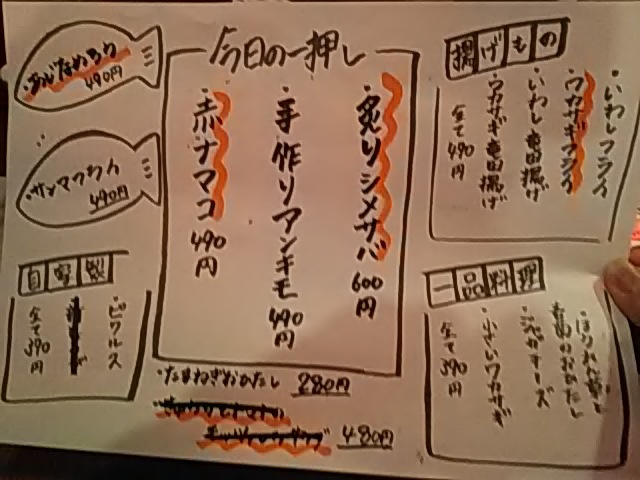 今日の一押し
・炙りシメサバ 600円
・手作りアンキモ 490円
・赤ナマコ 490円
揚げもの
・いわしフライ
・ワカサギフライ
・いわし竜田揚げ
・ワカサギ竜田揚げ
全て490円
一品料理
・ほうれん草と
・小さいワカサギ
全て390円
・あじなめろう
490円
・サンマつみれ
490円
自家製
・ピクルス
全て390円
・たまねぎおかだし 280円
480円